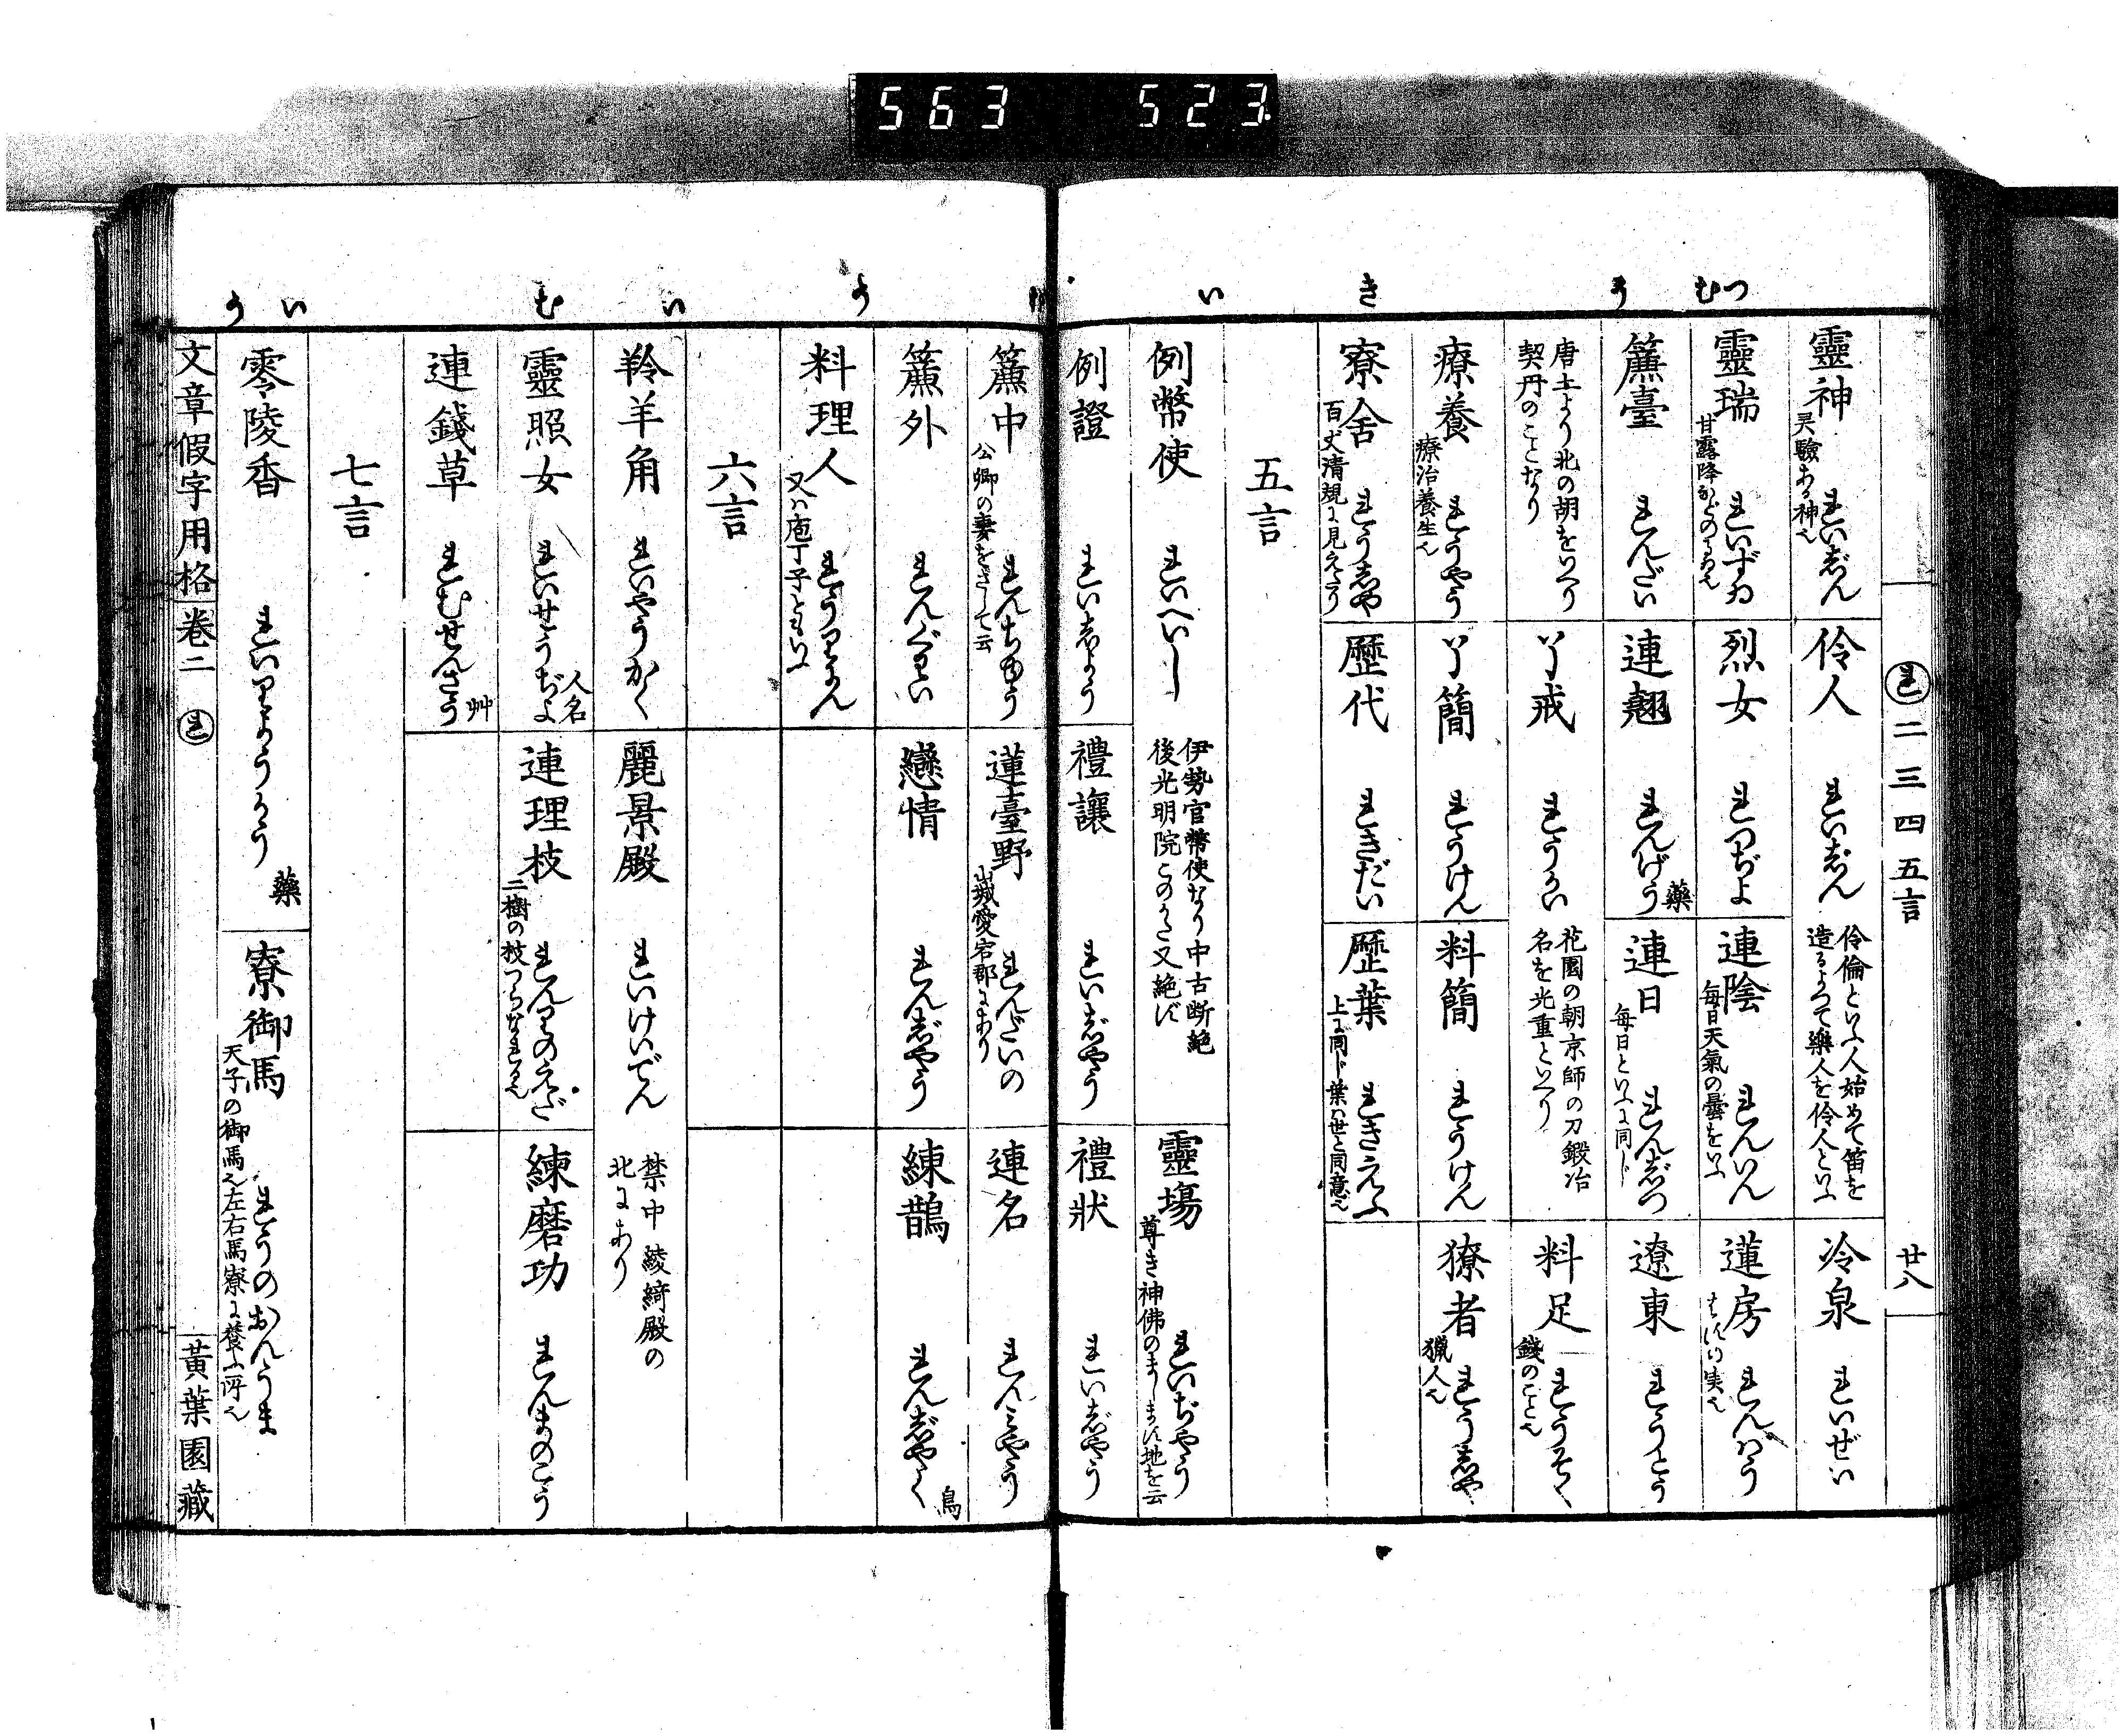 563 523
つ む う き い
れ 二 三 四 五言 廿八
靈神 れいじん 灵驗ある神也
伶人 れいじん 伶倫といふ人始めて笛を造るよつて樂人を伶人といふ
冷泉 れいぜい
靈瑞 れいずゐ
烈女 れつぢよ
連陰 れんいん 毎日天氣の曇をいふ
蓮房 れんばう
簾臺 れんだい
連翹 れんげう 藥
連日 れんじつ 毎日といふに同じ
遼東 れうとう
唐土より北の胡をいへり契丹のことなり
了戒 れうかい 花園の朝京師の刀鍛冶名を光重といへり
料足 れうそく 錢のこと也
療養 れうやう 療治養生也
了簡 れうけん
料簡 れうけん
獠者 れうしや 獵人也
寮舍 れうしや 百丈清規に見えたり
歷代 れきだい
歷葉 れきえふ 上に同じ葉は世と同意也
五言
例幣使 れいへいし 伊勢官幣使なり中古断絶後光明院このかた又絶ず
靈塲 れいぢやう 尊き神佛のまします地を云
例證 れいしよう
禮讓 れいじやう
禮狀 れいじやう
う い む い う
簾中 れんちゆう 公卿の妻をさして云
蓮臺野 れんだいの 山城愛宕郡にあり
連名 れんみやう
簾外 れんぐわい
戀情 れんじやう
練鵲 れんじやく 鳥
料理人 れうりにん 又は庖丁子ともいふ
六言
羚羊角 れいやうかく
麗景殿 れいけいでん 禁中綾綺殿の北にあり
靈照女 れいせうぢよ 人名
連理枝 れんりのえだ 二樹の枝つらなれる也
練磨功 れんまのこう
連錢草 れむせんさう 艸
七言
零陵香 れいりようかう 藥
寮御馬 れうのおんうま 天子の御馬也左右馬寮に養ふ所也
文章假字用格 卷二 れ 黃葉園藏